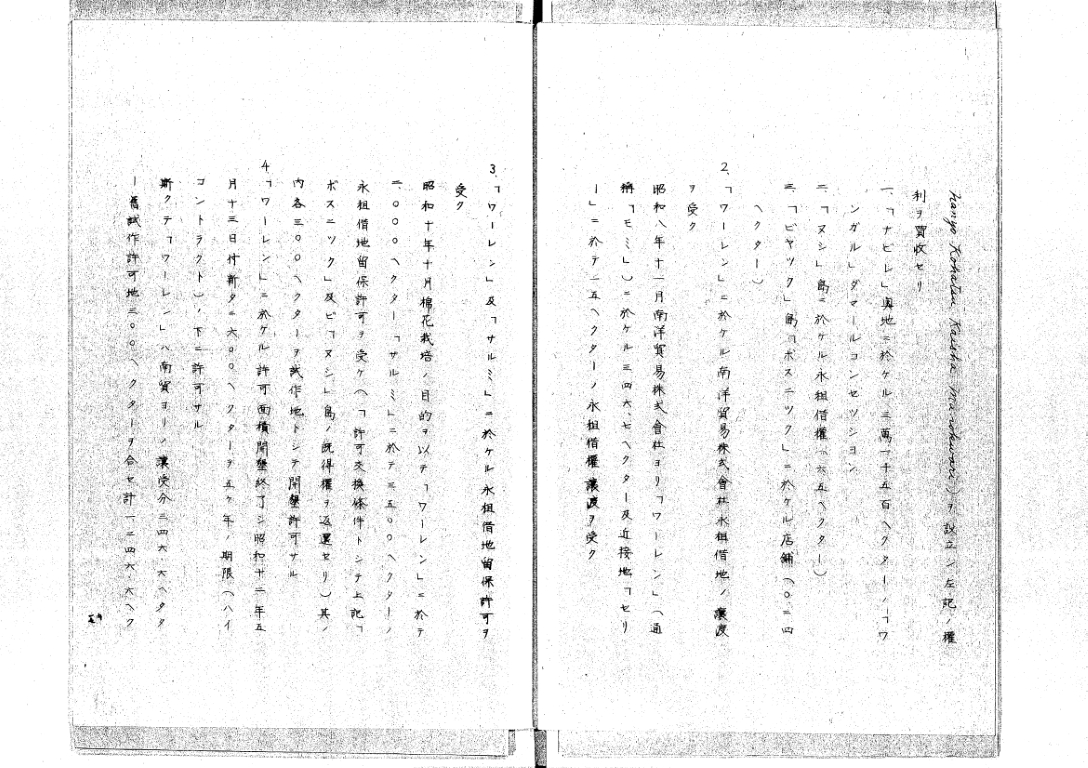 Nanyo Kohatsu Kaisha Maatschappij)ヲ設立シ左記ノ權
利ヲ買收セリ
一、「ナビレ」奧地ニ於ケル三萬一千五百ヘクターノ「ワ
ンガル」ダマールコンセツシヨン
二、「ヌシ」島ニ於ケル永租借權(六五ヘクター)
三、「ビヤツク」島「ボスニツク」ニ於ケル店舖(〇.二四
ヘクター)
2.「ワーレン」ニ於ケル南洋貿易株式會社永租借地ノ讓渡
ヲ受ク
昭和八年十一月南洋貿易株式會社ヨリ「ワーレン」(通
稱「モミ」)ニ於ケル三四六.七ヘクター及近接地「セリ
ー」ニ於テ一五ヘクターノ永租借權讓渡ヲ受ク
3.「ワーレン」及「サルミ」ニ於ケル永租借地留保許可ヲ
受ク
昭和十年十月棉花栽培ノ目的ヲ以テ「ワーレン」ニ於テ
二、〇〇〇ヘクター「サルミ」ニ於テ三五〇〇ヘクターノ
永租借地留保許可ヲ受ケ(許可交換條件トシテ上記「
ボスニツク」及ビ「ヌシ」島ノ既得權ヲ返還セリ)其ノ
内各三〇〇ヘクターヲ試作地トシテ開墾許可サル
4.「ワーレン」ニ於ケル許可面積開墾終了シ昭和十二年五
月十三日付新タニ六〇〇ヘクターヲ五ケ年ノ期限(ハイ
コントラクト)ノ下ニ許可サル
斯クテ「ワーレン」ハ南貿ヨリノ讓受分三四六.六ヘクタ
ー舊試作許可地三〇〇ヘクターヲ合セ計一二四六.六ヘク